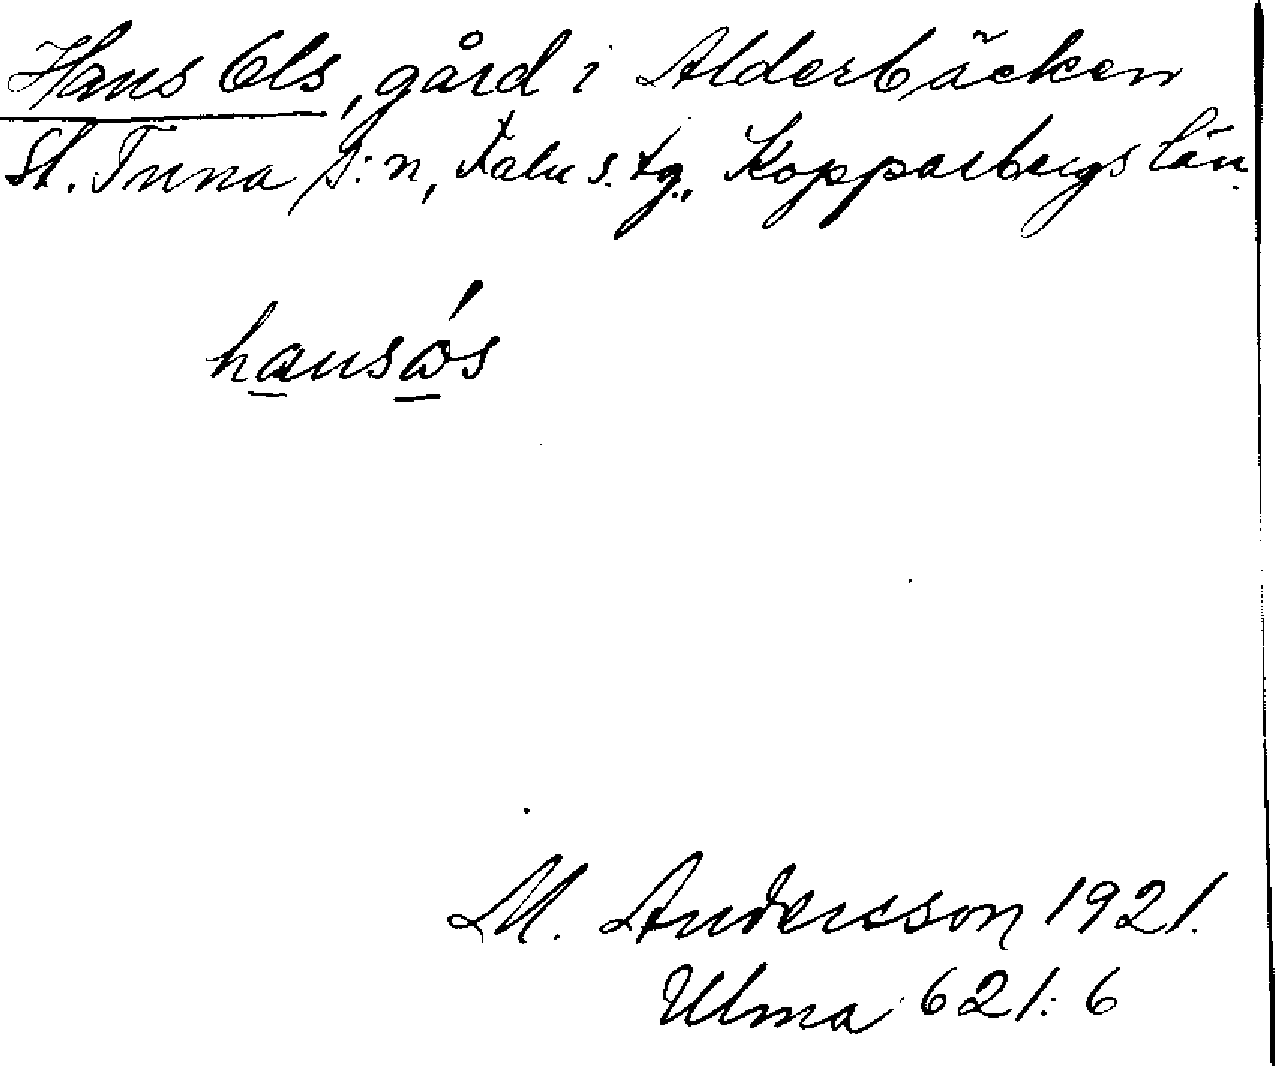 Hans Ols, gård i Alderbäcken
St. Tuna s:n, Falu s. tg., Kopparbergs län.
M. Andersson 1921.
Ulma 621:6